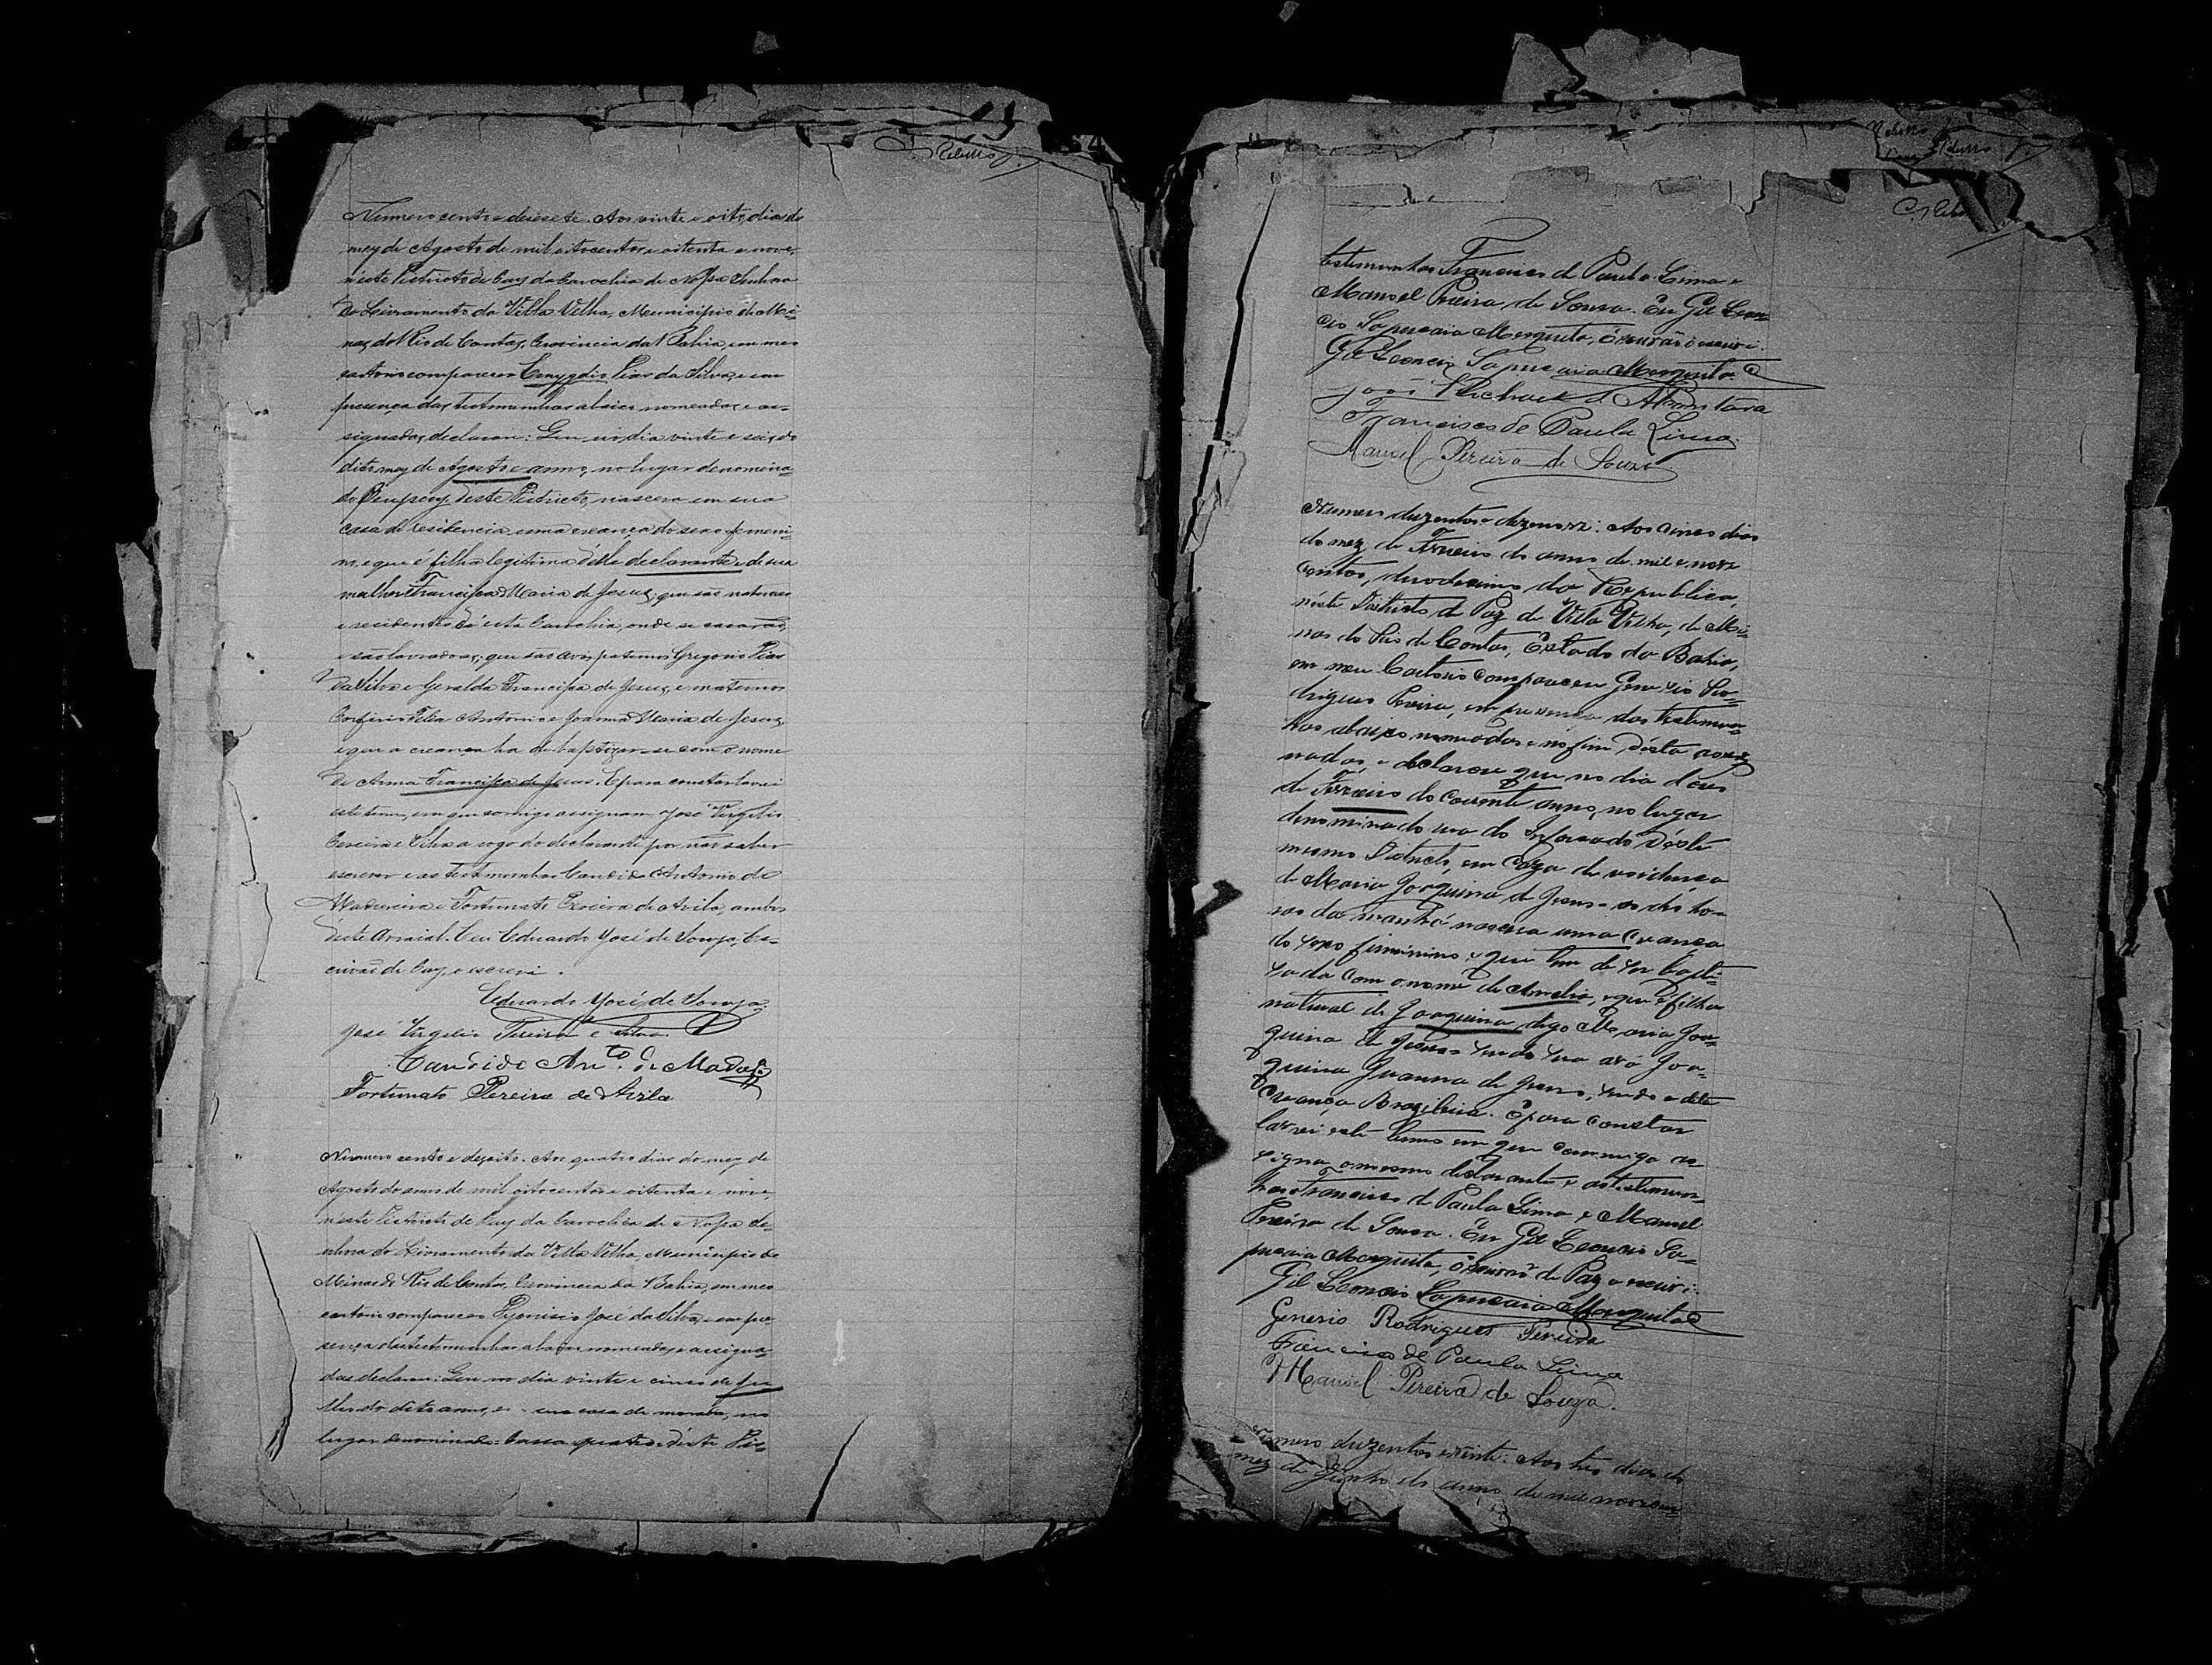 C. Rebello
Numero cento e desesete. Aos vinte e oito dias do
mez de Agosto de mil oitocentos e oitenta e nove,
n'este Districto de Paz da Parochia de Nossa Senhora
do Livramento da Villa Velha, Municipio de Mi-
nas do Rio de Contas, Provincia da Bahia, em meo
cartorio compareceo Emygdio Pias da Silva, e em
presença das testemunhas abaixo nomeadas e as-
signadas, declarou: Que no dia vinte e seis do
dito mez de Agosto e anno, no lugar denomina-
do deste Districto, nascera em sua
casa de residencia uma creança do sexo femeni-
no, e que é filha legitima d'elle declarante e de sua
mulher Francisca Maria de Jesus, que são naturaes
e residentes d'esta Parochia, onde se casarão,
e são lavradores; que são avós paternos Gregorio Pias
da Silva e Geralda Francisca de Jesus, e maternos
Porfirio Antonio e Joanna Maria de Jesus,
e que a creança ha de baptizar-se com o nome
de Anna Francisca de Jesus. E para constar lavrei
este termo, em que comigo assignam José Virgilio
Pereira e Silva a rogo do declarante por não saber
escrever e as testemunhas Candido Antonio de
Madureira e Fortunato Pereira de Avila, ambos
deste Arraial. Eu Eduardo José de Souza, Es-
crivão de Paz, o escrevi.
Eduardo José de Souza
José Virgilio Pereira e Silva
Candido Anto. de Madura.
Fortunato Pereira de Avila
Numero cento e dezoito. Aos quatro dias do mez de
Agosto do anno de mil oitocentos e oitenta e nove,
n'este Districto de Paz da Parochia de Nossa Se-
nhora do Livramento da Villa Velha, Municipio de
Minas do Rio de Contas, Provincia da Bahia, em meo
cartorio compareceo José da Silva, e em pre-
sença das testemunhas abaixo nomeadas e assigna-
das declarou: Que no dia vinte e cinco de Ju-
lho do dito anno, em sua casa de morada, no
lugar denominado deste Dis-
Rebello
C. Rebello
testemunhas Francisco de Paula Lima e
Manoel Pereira de Sousa. Eu Gil Leon-
cio Sapucaia Mosquito, escrivão o escrevi.
Gil Leoncio Sapucaia Mosquito
João d'Alcantara
Francisco de Paula Lima
Manoel Pereira de Souza
Numero duzentos e dezenove: Aos cinco dias
do mez de Fevreiro do anno de mil e nove
centos, duodecimo da Republica,
n'este Districto de Paz de Villa Velha, de Mi-
nas do Rio de Contas, Estado da Bahia,
em meu Cartorio compareceu Genesio Ro-
drigues Pereira, em presença das testemu-
nhas abaixo nomeadas e no fim d'esta assig-
nadas, e declarou que no dia dous
de Fevreiro do corrente anno, no lugar
denominado rua do Enforcado d'este
mesmo Districto, em Caza de residencia
de Maria Joaquina de Jesus, as dés ho-
ras da manhã nascera uma creança
do sexo feminino, e que tem de ser bapti-
sada com o nome de Amelia, e que é filha
natural de Joaquina digo Maria Joa-
quina de Jesus sendo sua avó Joa-
quina Joanna de Jesus, sendo a dita
creança Brazileira. E para constar
lavrei este termo em que commigo as-
signa o mesmo declarante e as testemu-
nhas Francisco de Paula Lima e Manoel
Pereira de Sousa. Eu Gil Leoncio Sa-
pucaia Mosquito, escrivão de Paz o escrevi.
Gil Leoncio Sapucaia Mosquito
Genesio Rodrigues Pereira
Francisco de Paula Lima
Manoel Pereira de Souza.
Numero duzentos e vinte: Aos tres dias do
mez de Junho do anno de mil novecen-